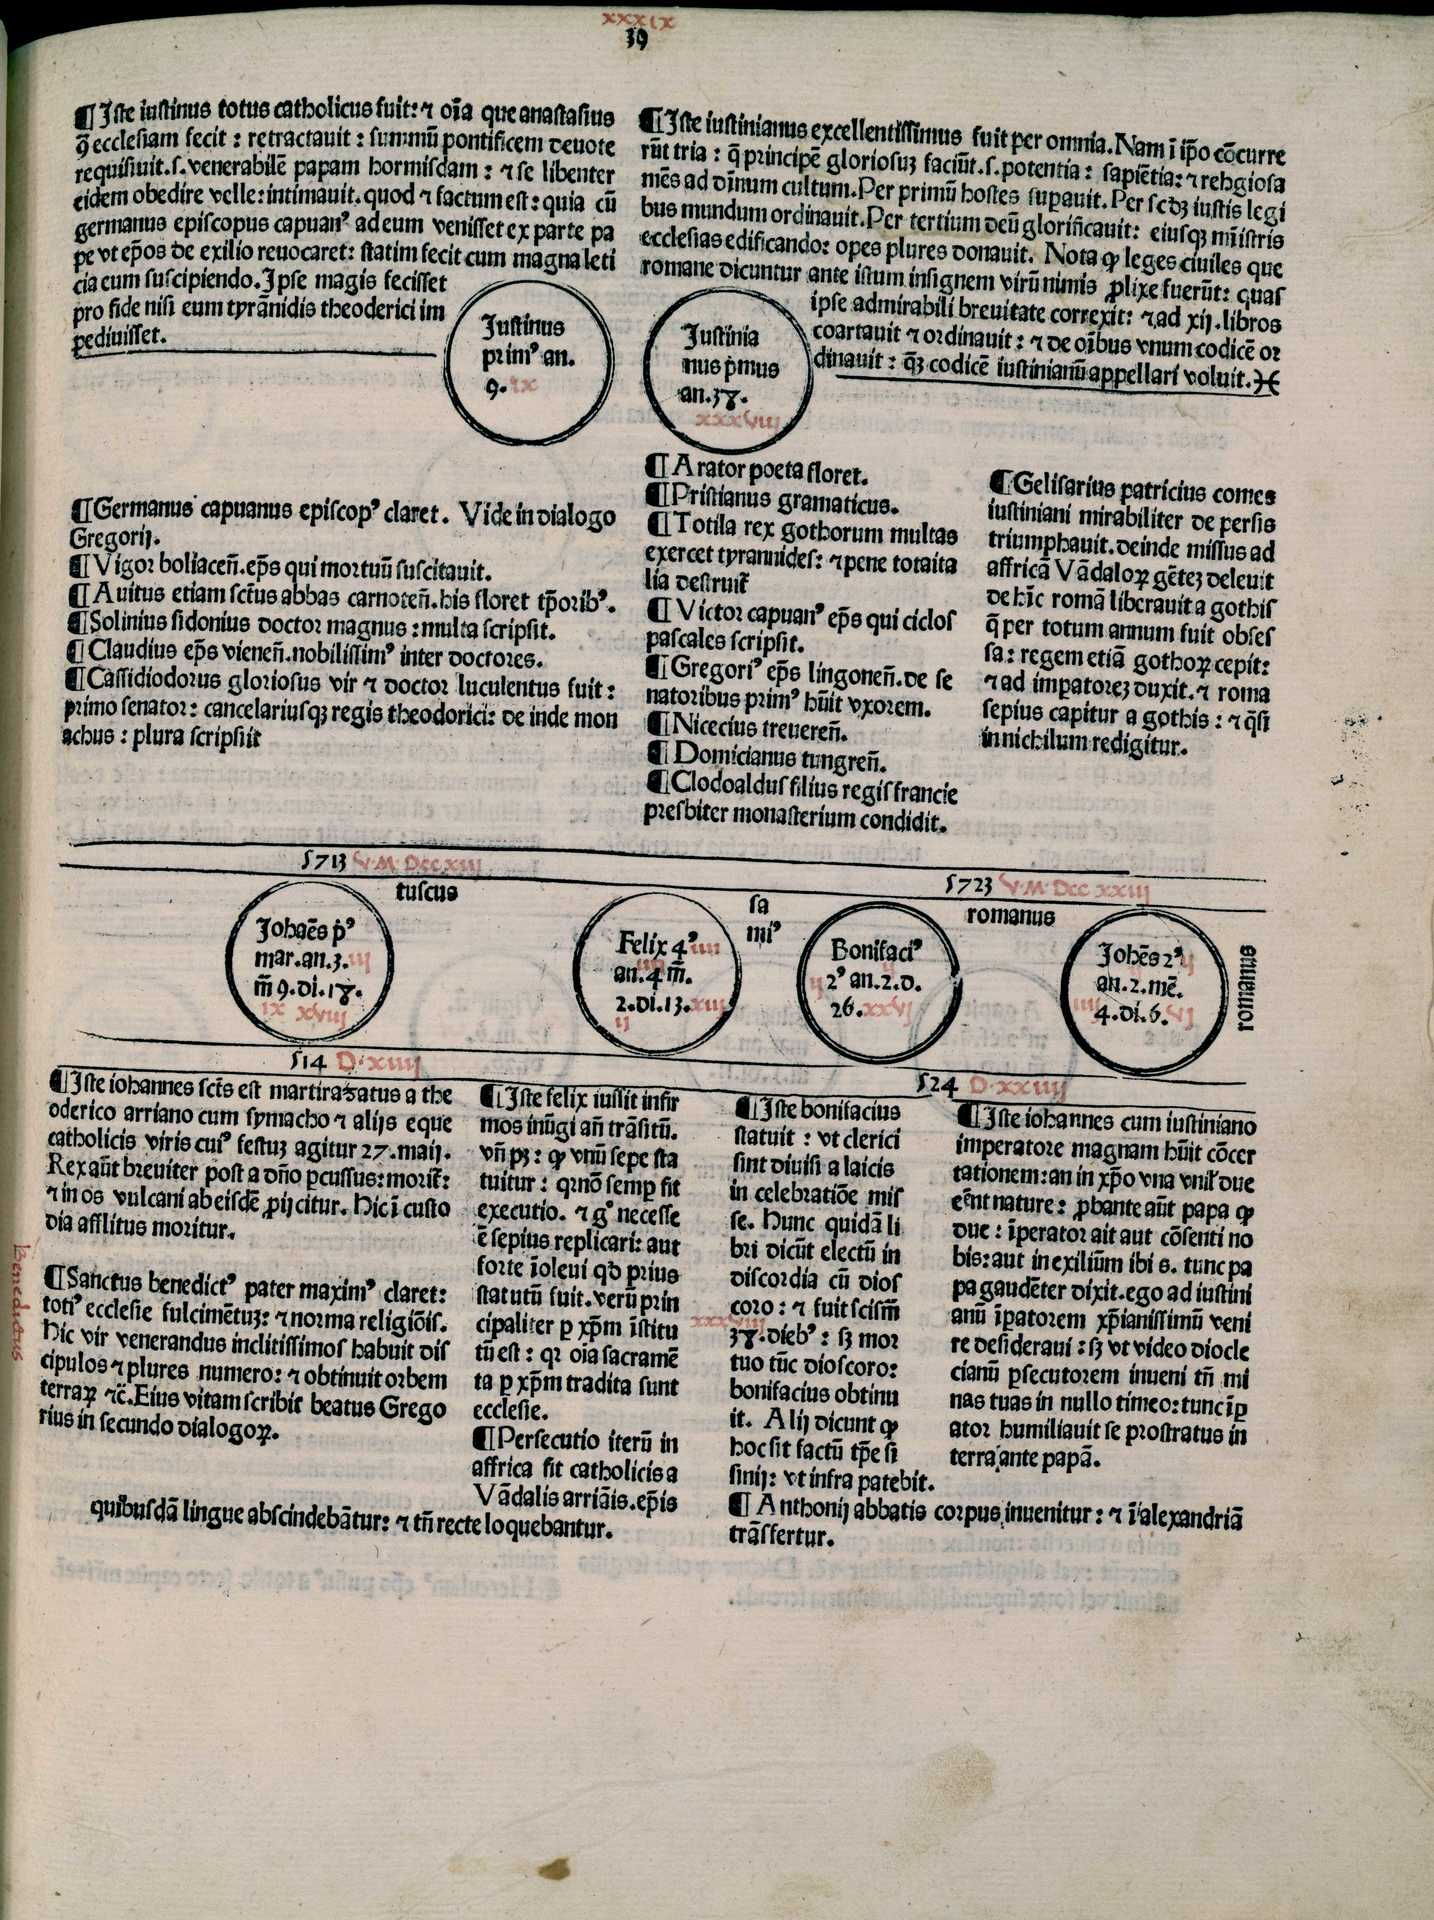 xxxix
39
¶Iste iustinus totus catholicus fuit: ⁊ oīa que anastasius
ꝯ̄ ecclesiam fecit: retractauit: summū pontificem deuote
requisiuit.s. venerabilē papam hormisdam: ⁊ se libenter
eidem obedire velle: intimauit. quod ⁊ factum est: quia cū
germanus episcopus capuanꝰ ad eum venisset ex parte pa
pe vt ep̄os de exilio reuocaret: statim fecit cum magna leti
cia eum suscipiendo. Ipse magis fecisset
pro fide nisi eum tyrānidis theoderici im
pediuisset.
Iustinus
primꝰ an.
9. ix
¶Iste iustinianus excellentissimus fuit per omnia. Nam ī ip̄o cōcurre
rūt tria: q̄ principē gloriosuꝫ faciūt.s. potentia: sapiētia: ⁊ religiosa
mēs ad dīnum cultum. Per primū hostes suꝑauit. Per scd̄ꝫ iustis legi
bus mundum ordinauit. Per tertium deū glorificauit: eiusqꝫ mīistris
ecclesias edificando: opes plures donauit. Nota ꝙ leges ciuiles que
romane dicuntur ante istum insignem virū nimis ꝓlixe fuerūt: quas
ipse admirabili breuitate correxit: ⁊ ad xij. libros
coartauit ⁊ ordinauit: ⁊ de oībus vnum codicē or
dinauit: q̄ꝫ codicē iustinianū appellari voluit.
Iustinia
nus pͥmus
an.38.
xxxviij
¶Germanus capuanus episcopꝰ claret. Vide in dialogo
Gregorij.
¶Vigor boliaceñ. ep̄s qui mortuū suscitauit.
¶Auitus etiam sctūs abbas carnoteñ. his floret tp̄oribꝰ.
¶Solinius sidonius doctor magnus: multa scripsit.
¶Claudius ep̄s vieneñ. nobilissimꝰ inter doctores.
¶Cassidiodorus gloriosus vir ⁊ doctor luculentus fuit:
primo senator: cancelariusqꝫ regis theodorici: de inde mon
achus: plura scripsit
¶Arator poeta floret.
¶Pristianus gramaticus.
¶Totila rex gothorum multas
exercet tyrannides: ⁊ pene tota ita
lia destruit̄
¶Victor capuanꝰ ep̄s qui ciclos
pascales scripsit.
¶Gregoriꝰ ep̄s lingoneñ. de se
natoribus primꝰ hūit vxorem.
¶Nicecius treuereñ.
¶Domicianus tungreñ.
¶Clodoaldus filius regis francie
presbiter monasterium condidit.
¶Gelisarius patricius comes
iustiniani mirabiliter de persis
triumphauit. deinde missus ad
affricā Vādaloꝝ gēteꝫ deleuit
de hīc romā liberauit a gothis
q̄ per totum annum fuit obses
sa: regem etiā gothoꝝ cepit:
⁊ ad imꝑatoreꝫ duxit. ⁊ roma
sepius capitur a gothis: ⁊ q̄si
in nichilum redigitur.
5713 V.M.DCC.XIIJ
5723 V.M.DCC XXIIJ
tuscus
Johāēs pͥꝰ
mar. an.3. iij
m̄ 9. di.18.
ix xviij
sa
miꝰ
Felix 4ꝰ iiij
an.4 m̄. iiij
2. di.13. xiij
ij
romanus
Bonifaciꝰ
2ꝰ an.2.d. ij ij
26. xxvj
romanus
Johēs 2ꝰ ij
an.2. mē. ij
4. di.6. vj
iiij
514 D.xiiij
524 D.xxiiij
¶Iste iohannes sctūs est martirazatus a the
oderico arriano cum symacho ⁊ alijs eque
catholicis viris cuiꝰ festuꝫ agitur 27. maij.
Rex aūt breuiter post a dn̄o ꝑcussus: morit̄:
⁊ in os vulcani ab eisdē ꝓijcitur. Hic ī custo
dia afflitus moritur.
Benedictus
¶Sanctus benedictꝰ pater maximꝰ claret:
totiꝰ ecclesie fulcimētuꝫ: ⁊ norma religiōis.
Hic vir venerandus inclitissimos habuit dis
cipulos ⁊ plures numero: ⁊ obtinuit orbem
terraꝝ ⁊c̄. Eius vitam scribit beatus Grego
rius in secundo dialogoꝝ.
¶Iste felix iussit infir
mos inūgi añ trāsitū.
vñ pꝫ: ꝙ vnū sepe sta
tuitur: qr nō semꝑ fit
executio. ⁊ gͦ necesse
ē sepius replicari: aut
forte īoleui qd̄ prius
statutū fuit. verū prin
cipaliter ꝑ xp̄m īstitu
tū est: qr oīa sacramē
ta ꝑ xp̄m tradita sunt
ecclesie.
¶Persecutio iterū in
affrica fit catholicis a
Vādalis arriāis. ep̄is
quibusdā lingue abscindebātur: ⁊ tñ recte loquebantur.
¶Iste bonifacius
statuit: vt clerici
sint diuisi a laicis
in celebratiōe mis
se. Hunc quidā li
bri dicūt electū in
discordia cū dios
coro: ⁊ fuit scism̄
xxxviij
38. diebꝰ: sꝫ mor
tuo tūc dioscoro:
bonifacius obtinu
it. Alij dicunt ꝙ
hoc sit factū tp̄e si
sinij: vt infra patebit.
¶Anthonij abbatis corpus inuenitur: ⁊ ī alexandriā
trāsfertur.
¶Iste iohannes cum iustiniano
imperatore magnam hūit cōcer
tationem: an in xp̄o vna vnīt due
eēnt nature: ꝓbante aūt papa ꝙ
due: īperator ait aut cōsenti no
bis: aut in exiliūm ibis. tunc pa
pa gaudēter dixit. ego ad iustini
anū īꝑatorem xp̄ianissimū veni
re desideraui: sꝫ vt video diocle
cianū ꝑsecutorem inueni tñ mi
nas tuas in nullo timeo: tunc īꝑ
ator humiliauit se prostratus in
terra ante papā.